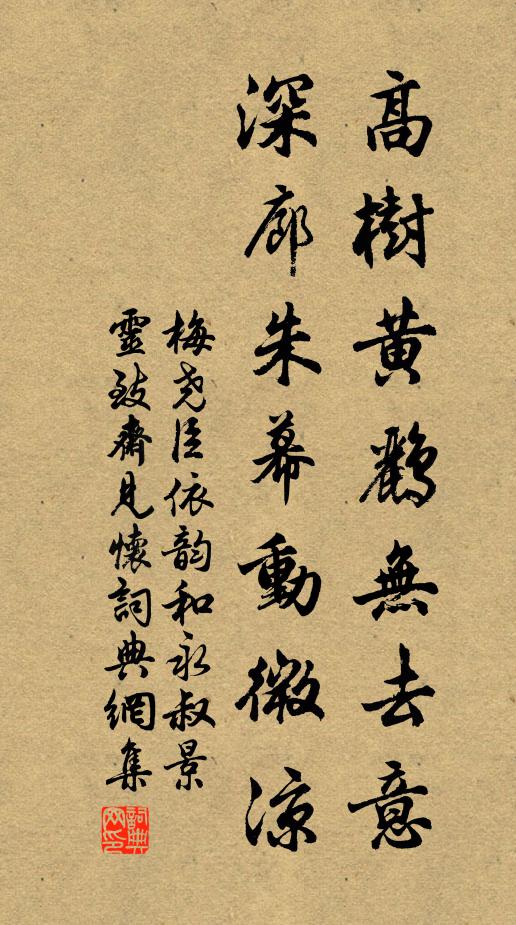 高樹黃鸝無去意
深廊朱幕動微涼
梅堯臣依韵和永叔景
靈致齋見懷詞典網集
詞典网印